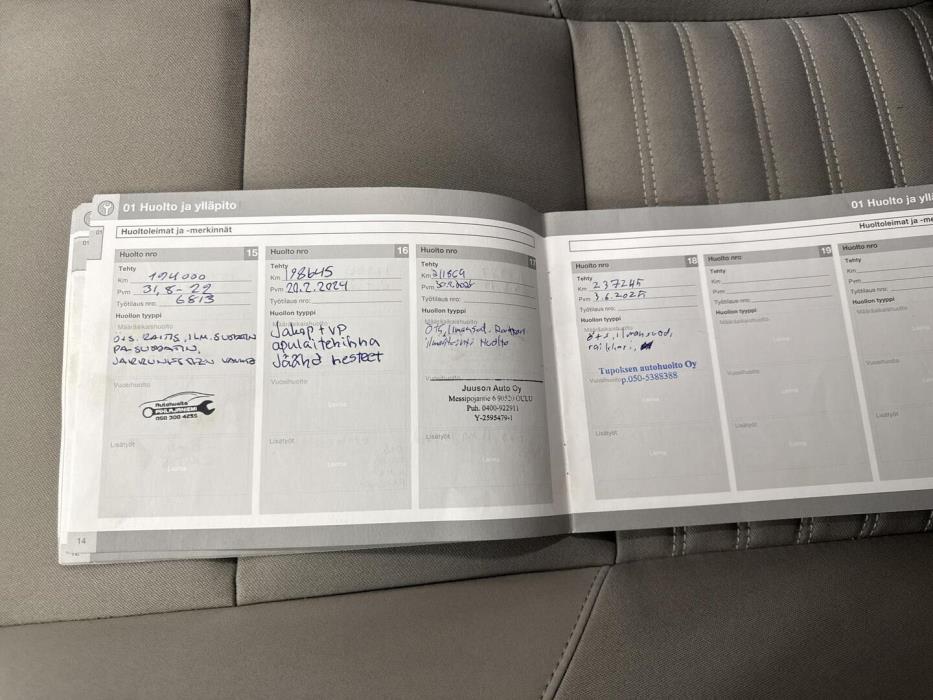 01 Huolto ja ylläpito
Huoltoleimat ja -merkinnät
Huolto nro 15
Tehty
Km 194000
Pvm 31.8-22
Työtilaus nro: 6813
Huollon tyyppi
Määräaikaishuolto
Ö+S. RAITIS, ILM. SUODATIN
PA. SUODATIN,
JARRUNESTEEN VAIHTO
Vuosihuolto
Autohuolto
POHJAJANIEMI
050 308 4255
Lisätyöt
Leima
14
Huolto nro 16
Tehty
Km 198645
Pvm 20.2.2024
Työtilaus nro:
Huollon tyyppi
Määräaikaishuolto
Jakop + VP
apulaitehihna
Jäähd nesteet
Vuosihuolto
Leima
Lisätyöt
Leima
Huolto nro 17
Tehty
Km
Pvm
Työtilaus nro:
Huollon tyyppi
Määräaikaishuolto
Huolto
Vuosihuolto
Juuson Auto Oy
Messipojantie 6 90520 OULU
Puh. 0400-922911
Y-2595479-1
Lisätyöt
Leima
01 Huolto ja yllä
Huoltoleimat ja -me
Huolto nro 18
Tehty
Km 237245
Pvm 3.6.2025
Työtilaus nro:
Huollon tyyppi
Määräaikaishuolto
ö+s, ilmansuod,
Tupoksen autohuolto Oy
Vuosihuolto p.050-5388388
Leima
Lisätyöt
Leima
Huolto nro 19
Tehty
Km
Pvm
Työtilaus nro:
Huollon tyyppi
Määräaikaishuolto
Leima
Vuosihuolto
Leima
Lisätyöt
Leima
Huolto nro
Tehty
Km
Pvm
Työtilaus nro:
Huollon tyyppi
Määräaikaishuolto
Vuosihuolto
Lisätyöt